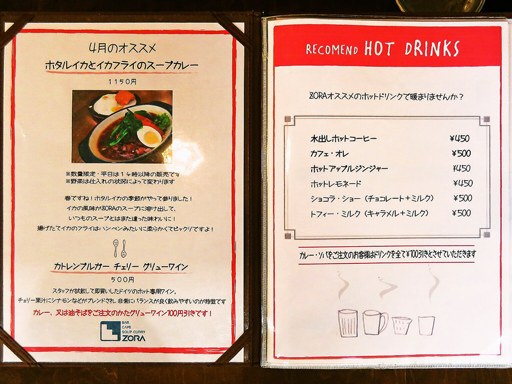 4月のオススメ
ホタルイカとイカフライのスープカレー
1150円
※数量限定・平日は14時以降の販売です
※野菜は仕入れの状況によって変わります
春ですね!ホタルイカの季節がやって参りました!
イカの風味がZORAのスープに溶け出して、
いつものスープとはまた違った味わいに!
揚げたてイカのフライはハンペンみたいに柔らかくてビックリですよ!
カトレンブルガー チェリー グリューワイン
500円
スタッフが試飲して即買いしたドイツのホット専用ワイン。
チェリー果汁にシナモンなどがブレンドされ、非常にバランスが良く飲みやすいのが特徴です
カレー、又は油そばをご注文のかたグリューワイン100円引きです!
BAR
CAFE
SOUP CURRY
ZORA
RECOMEND HOT DRINKS
ZORAオススメのホットドリンクで暖まりませんか?
水出しホットコーヒー ¥450
カフェ・オレ ¥500
ホットアップルジンジャー ¥450
ホットレモネード ¥450
ショコラ・ショー(チョコレート+ミルク) ¥500
トフィー・ミルク(キャラメル+ミルク) ¥500
カレー・ソバをご注文のお客様はドリンクを全て¥100引きとさせていただきます